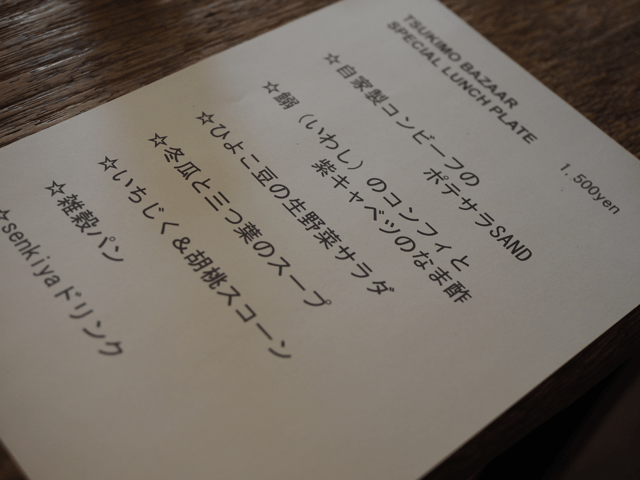 TSUKIMO BAZAAR
SPECIAL LUNCH PLATE
1,500yen
☆自家製コンビーフの
ポテサラSAND
☆鰯（いわし）のコンフィと
紫キャベツのなま酢
☆ひよこ豆の生野菜サラダ
☆冬瓜と三つ葉のスープ
☆いちじく＆胡桃スコーン
☆雑穀パン
☆senkiyaドリンク